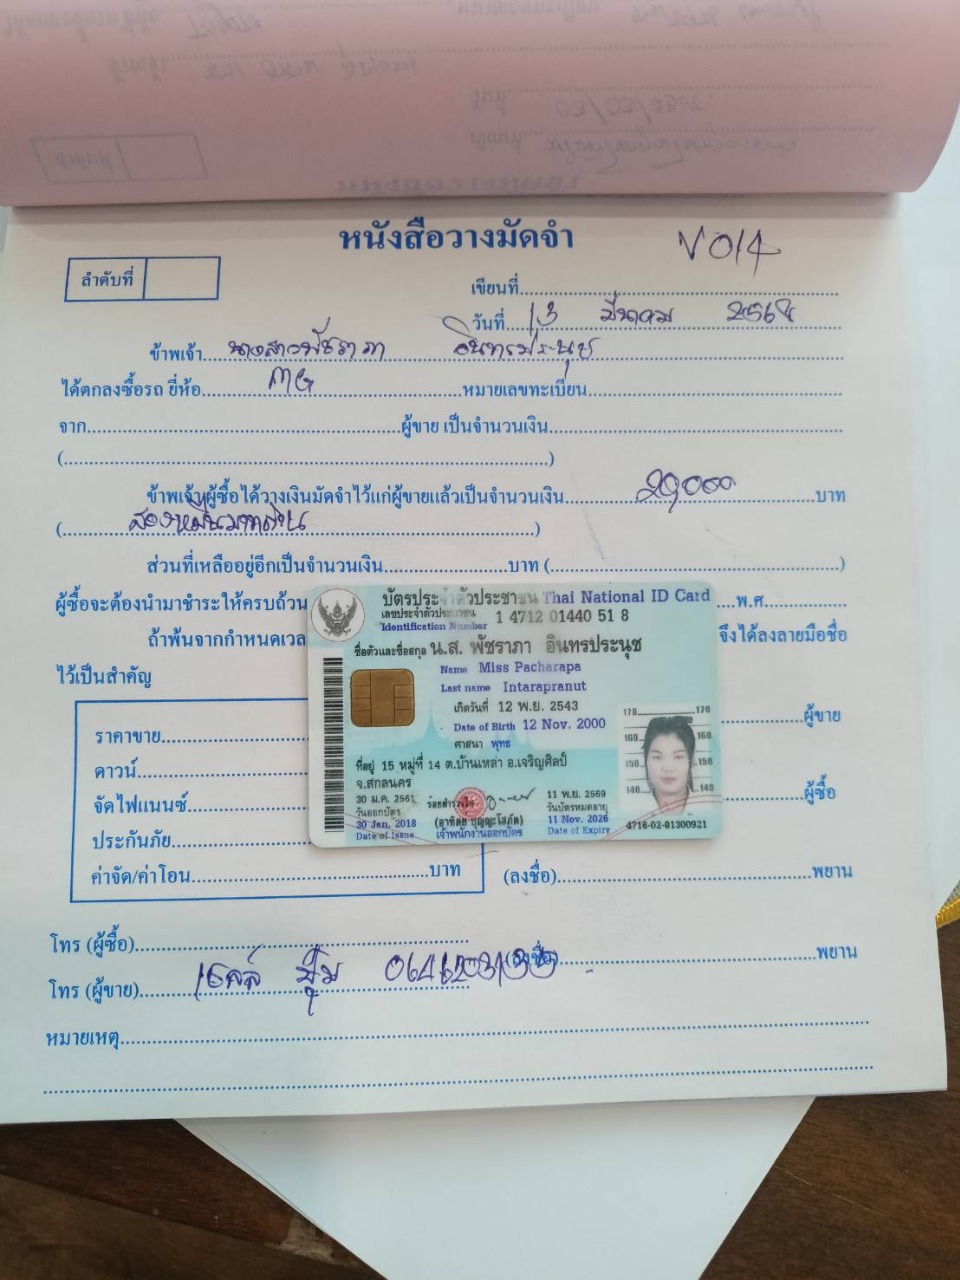 หนังสือวางมัดจำ
V014
ลำดับที่
เขียนที่
วันที่ 13 มีนาคม 2568
ข้าพเจ้า นางสาวพัชราภา อินทรประนุช
ได้ตกลงซื้อรถ ยี่ห้อ MG หมายเลขทะเบียน
จาก ผู้ขาย เป็นจำนวนเงิน
( )
ข้าพเจ้าผู้ซื้อได้วางเงินมัดจำไว้แก่ผู้ขายแล้วเป็นจำนวนเงิน บาท
( )
ส่วนที่เหลืออยู่อีกเป็นจำนวนเงิน บาท ( )
ผู้ซื้อจะต้องนำมาชำระให้ครบถ้วน พ.ศ.
ถ้าพ้นจากกำหนดเวล จึงได้ลงลายมือชื่อ
ไว้เป็นสำคัญ
บัตรประจำตัวประชาชน Thai National ID Card
เลขประจำตัวประชาชน
Identification Number 1 4712 01440 51 8
ชื่อตัวและชื่อสกุล น.ส. พัชราภา อินทรประนุช
Name Miss Pacharapa
Last name Intarapranut
เกิดวันที่ 12 พ.ย. 2543
Date of Birth 12 Nov. 2000
ศาสนา พุทธ
ที่อยู่ 15 หมู่ที่ 14 ต.บ้านเหล่า อ.เจริญศิลป์
จ.สกลนคร
30 ม.ค. 2561
วันออกบัตร
30 Jan. 2018
Date of Issue
เจ้าพนักงานออกบัตร
11 พ.ย. 2569
วันบัตรหมดอายุ
11 Nov. 2026
Date of Expiry
170 170
160 160
150 150
140 140
4716-02-01300921
ผู้ขาย
ผู้ซื้อ
ราคาขาย
ดาวน์
จัดไฟแนนซ์
ประกันภัย
ค่าจัด/ค่าโอน บาท
(ลงชื่อ) พยาน
โทร (ผู้ซื้อ)
(ลงชื่อ) พยาน
โทร (ผู้ขาย) เซลล์
หมายเหตุ